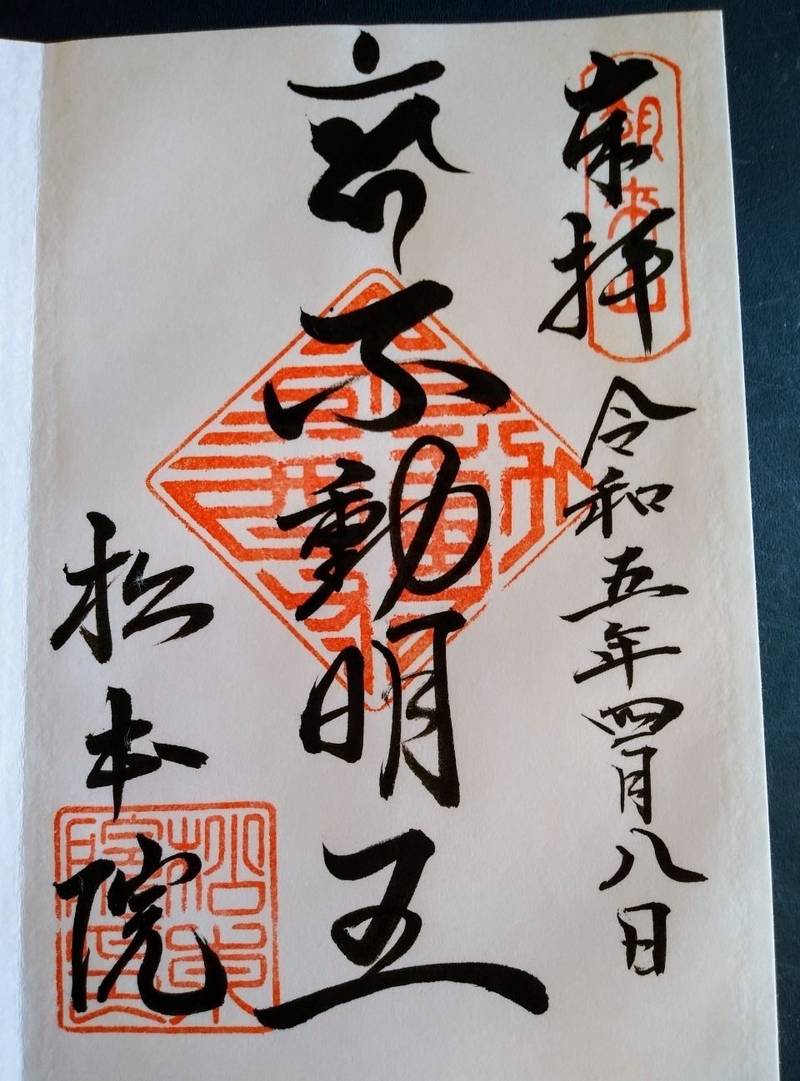 奉拝
令和五年四月八日
不動明王
松本院
松本院印